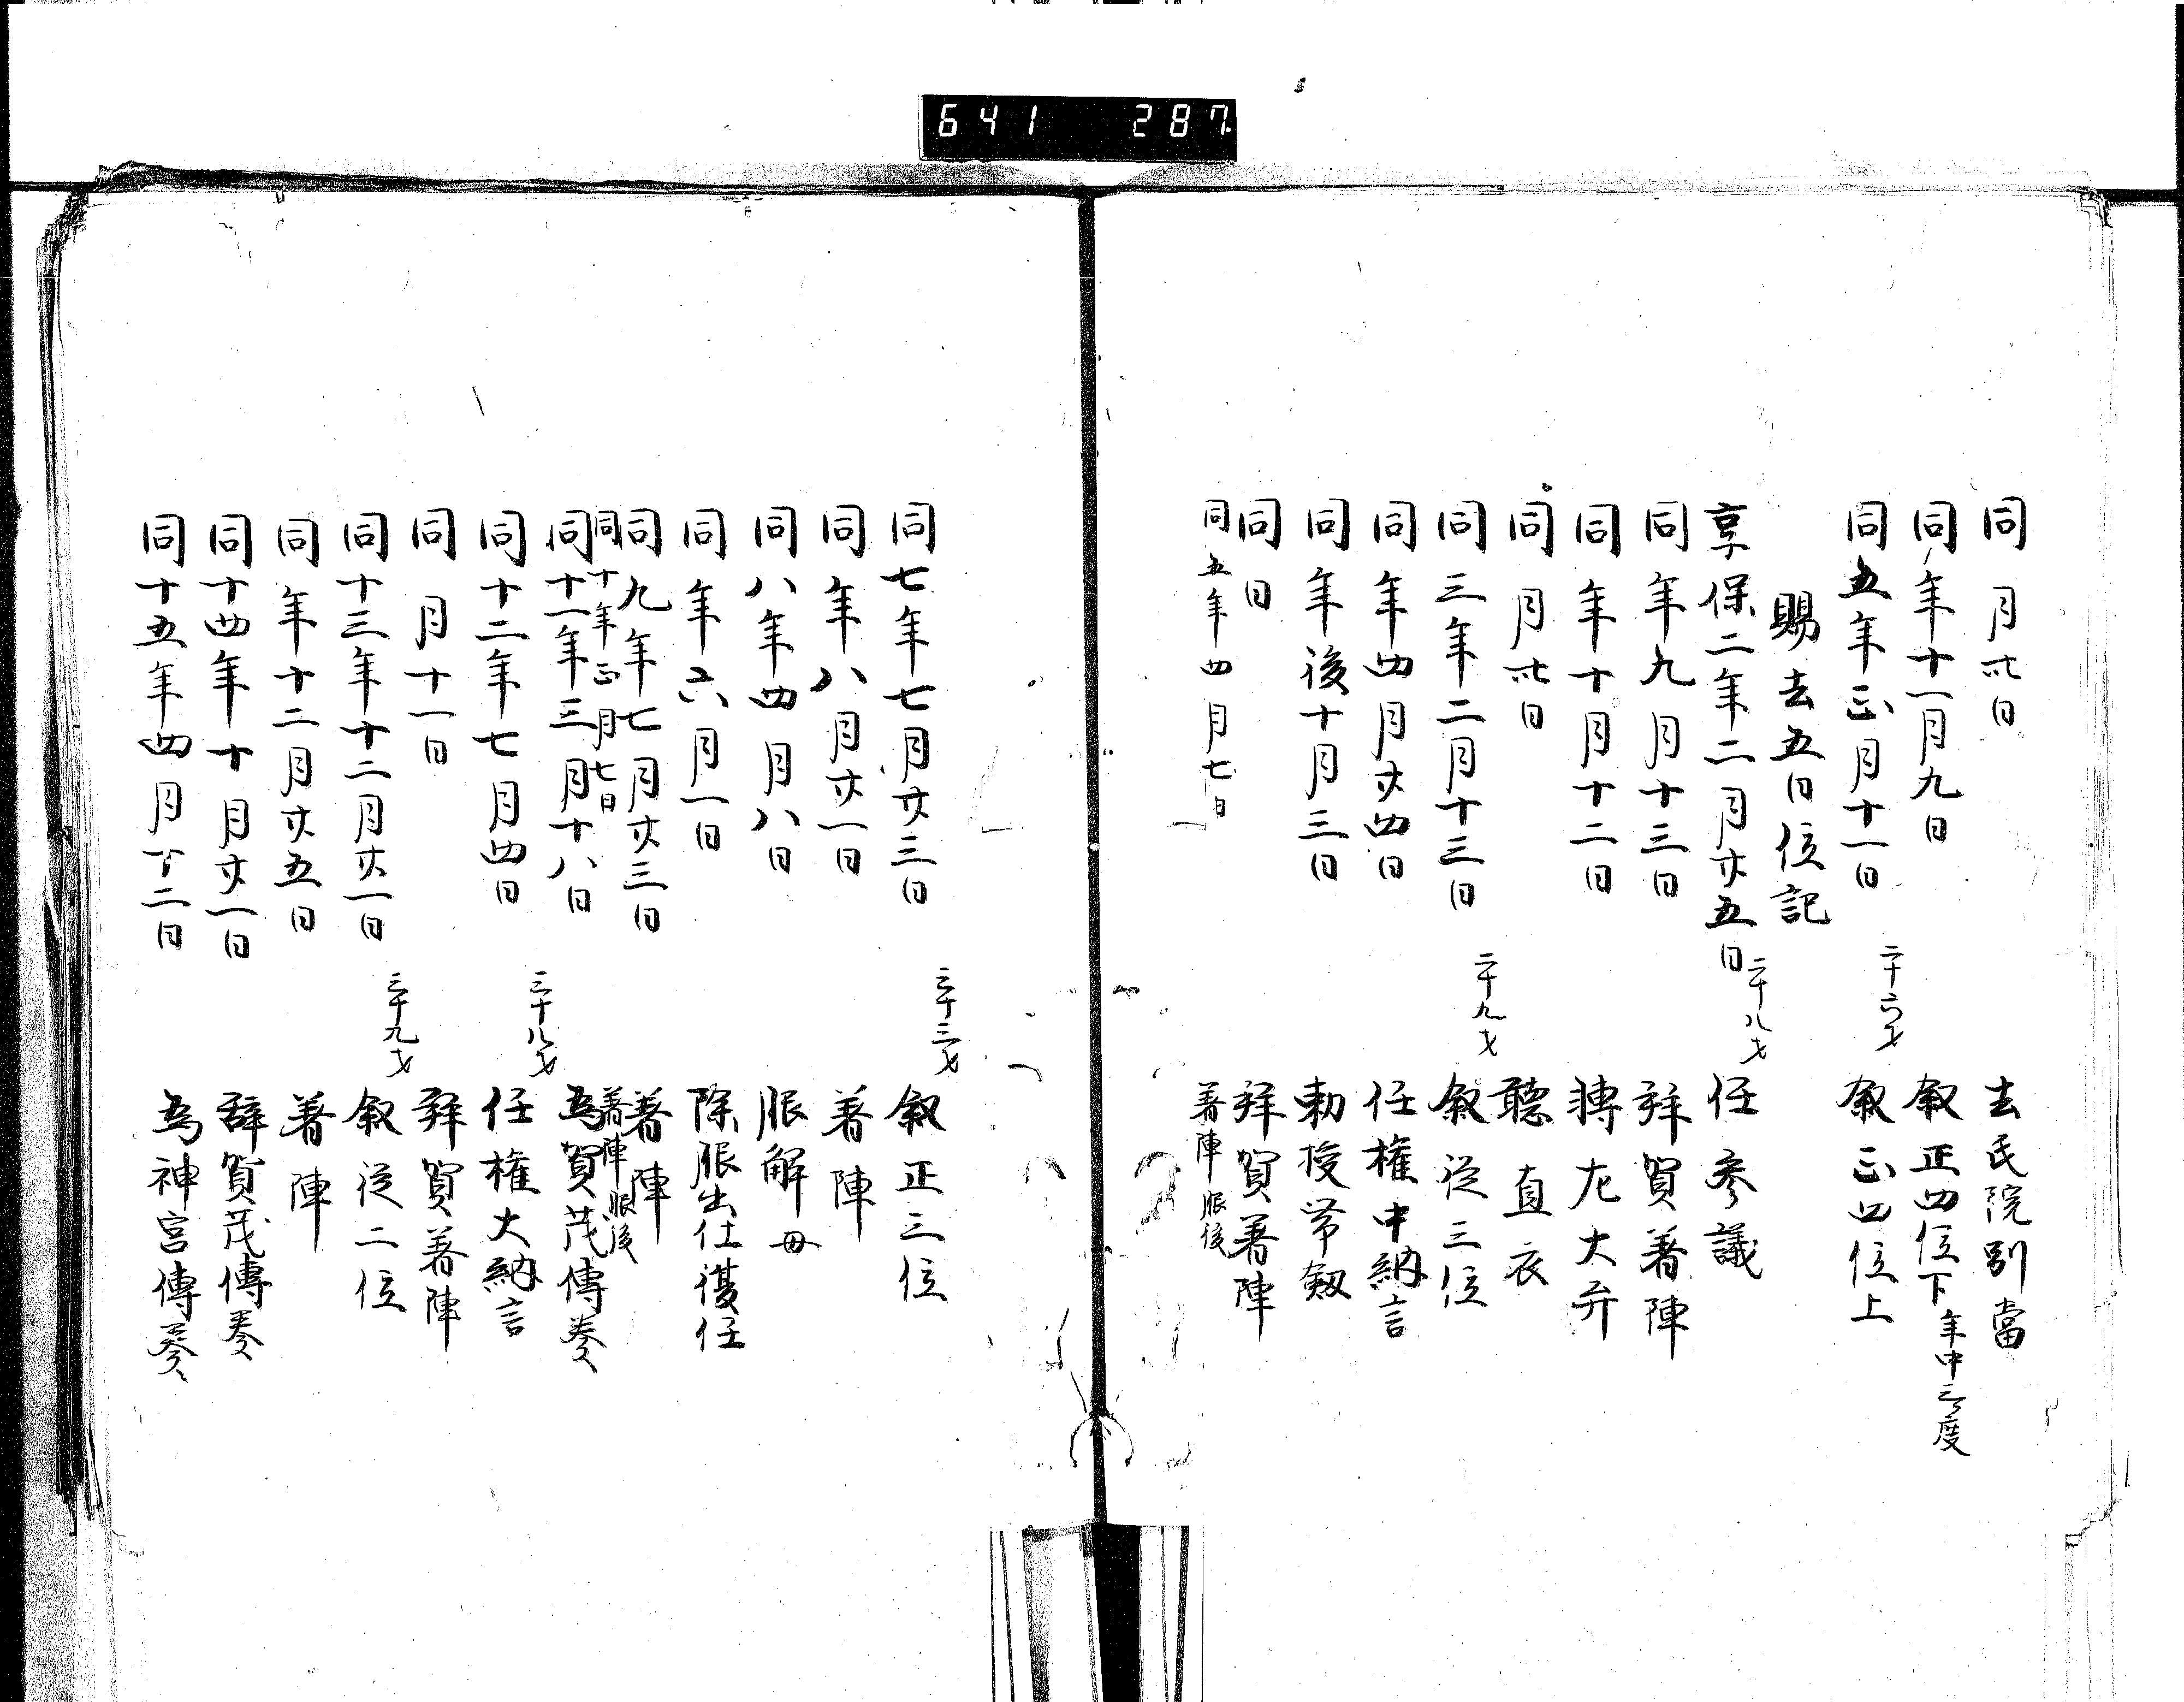 641 287
同月廿日 去氏院別當
同年十一月九日 叙正四位下 年中三度
同五年正月十一日 二十六才 叙正四位上
賜去五日位記
享保二年二月廿五日 二十八才 任參議
同年九月十三日 拜賀著陣
同年十月十二日 轉左大弁
同月廿日 聽直衣
同三年二月十三日 二十九才 叙從三位
同年四月廿四日 任權中納言
同年後十月三日 勅授帶劔
同日 拜賀著陣
同五年四月七日 著陣 服後
同七年七月廿三日 三十三才 叙正三位
同年八月廿一日 著陣
同八年四月八日 服解 母
同年六月一日 除服出仕復任
同九年七月廿三日 著陣
同十年正月七日 著陣 服後
同十一年三月十八日 為賀茂傳奏
同十二年七月四日 三十八才 任權大納言
同月十一日 拜賀著陣
同十三年十二月廿一日 三十九才 叙從二位
同年十二月廿五日 著陣
同十四年十月廿一日 辞賀茂傳奏
同十五年四月十二日 為神宮傳奏